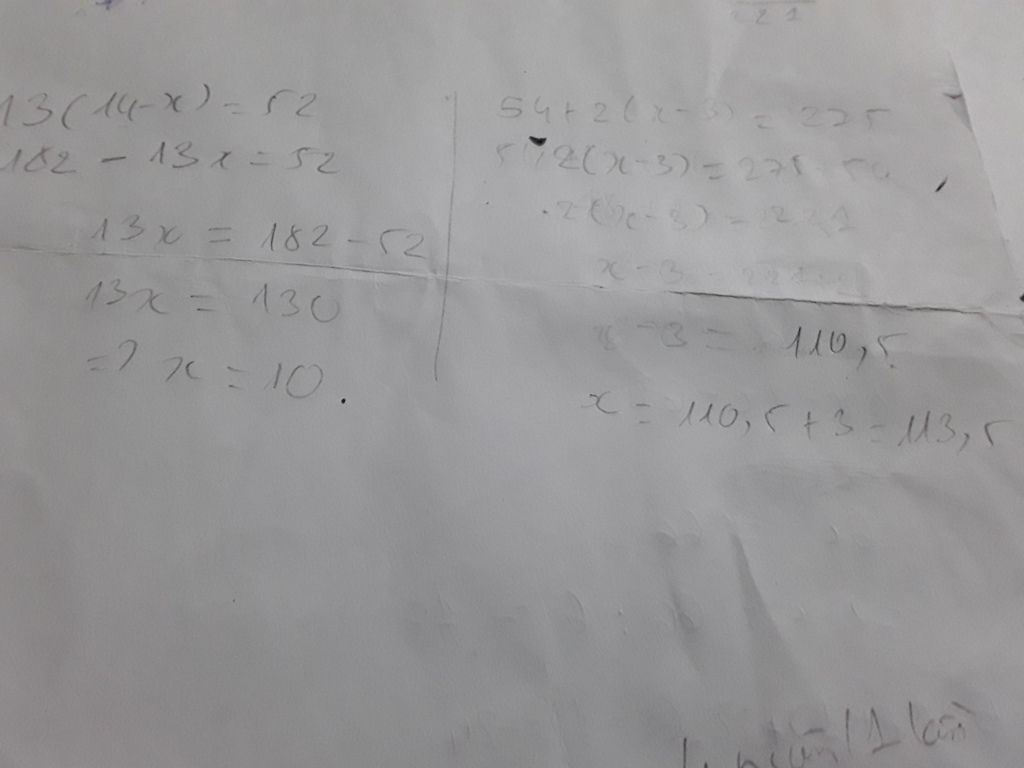 21
13(14-x) = 52
182 - 13x = 52
13x = 182 - 52
13x = 130
=> x = 10.
54 + 2(x-3) = 275
2(x-3) = 275 - 54
2(x-3) = 221
x-3 = 221:2
x-3 = 110,5
x = 110,5 + 3 = 113,5